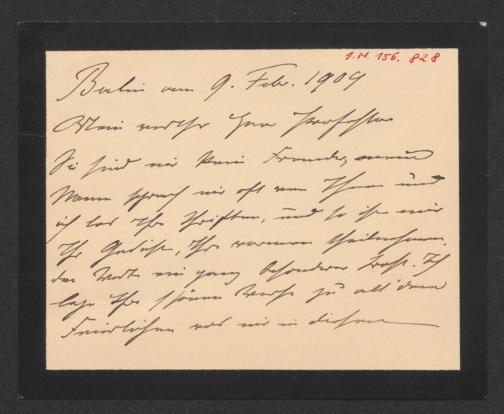 I.N. 156.828
Berlin am 9. Feb. 1909
Mein verehrter Herr Professor
Sie sind mir kein Fremder, mein
Mann sprach mir oft von Ihnen und
ich las Ihre Schriften, und so ist mir
Ihr Gedicht, Ihre warmen theilnehmen-
den Worte ein ganz besonderer Trost. Ich
lege Ihre schönen Verse zu all dem
Feierlichen was mir in diesen